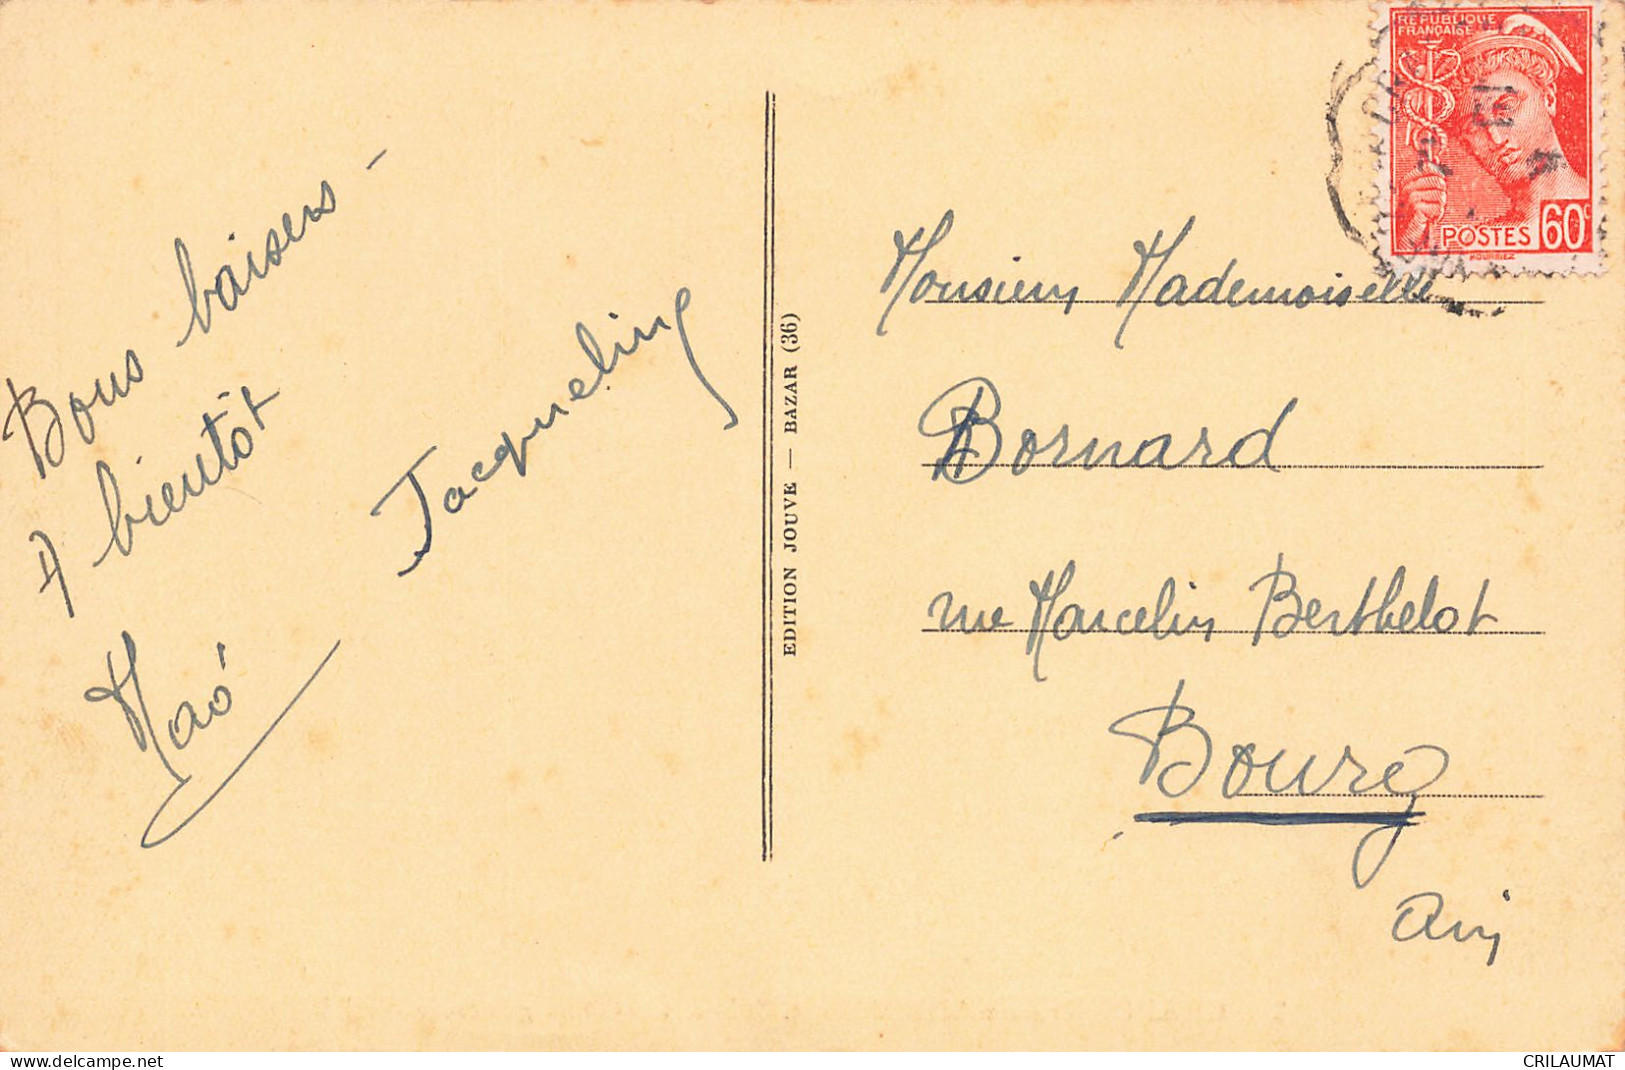 Bons baisers -
A bientôt
Jacqueline
Maó
EDITION JOUVE — BAZAR (36)
REPUBLIQUE
FRANÇAISE
POSTES 60c
Monsieur Mademoiselle
Bornard
rue Marcelin Berthelot
Bourg
Ain
delcampe.net
CRILAUMAT